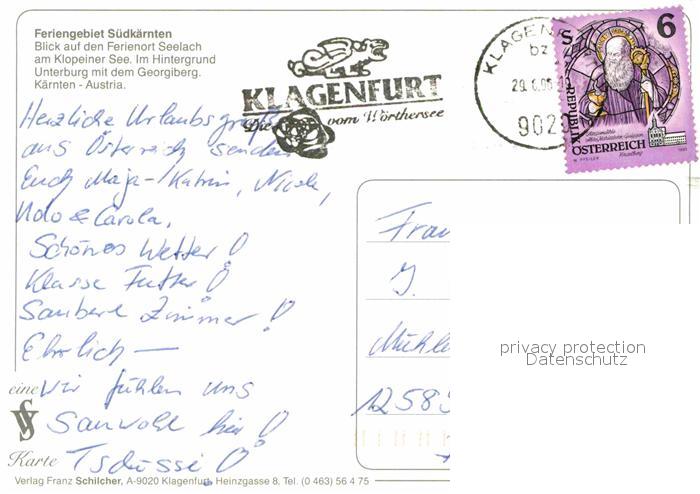 Feriengebiet Südkärnten
Blick auf den Ferienort Seelach
am Klopeiner See. Im Hintergrund
Unterburg mit dem Georgiberg.
Kärnten - Austria.
KLAGENFURT
Die vom Wörthersee
KLAGEN
bz
29.6.
902
6
REPUBLIK
ÖSTERREICH
Herzliche Urlaubsgrüße
aus Österreich senden
Euch Maja-Katrin, Nicole,
Udo & Carola.
Schönes Wetter!
Klasse Futter!
Saubere Zimmer!
Ehrlich —
wir fühlen uns
sauwohl hier!
Tschüssi
Frau
J.
Mühle
12589
privacy protection
Datenschutz
eine
Karte
Verlag Franz Schilcher, A-9020 Klagenfurt, Heinzgasse 8. Tel. (0 463) 56 4 75